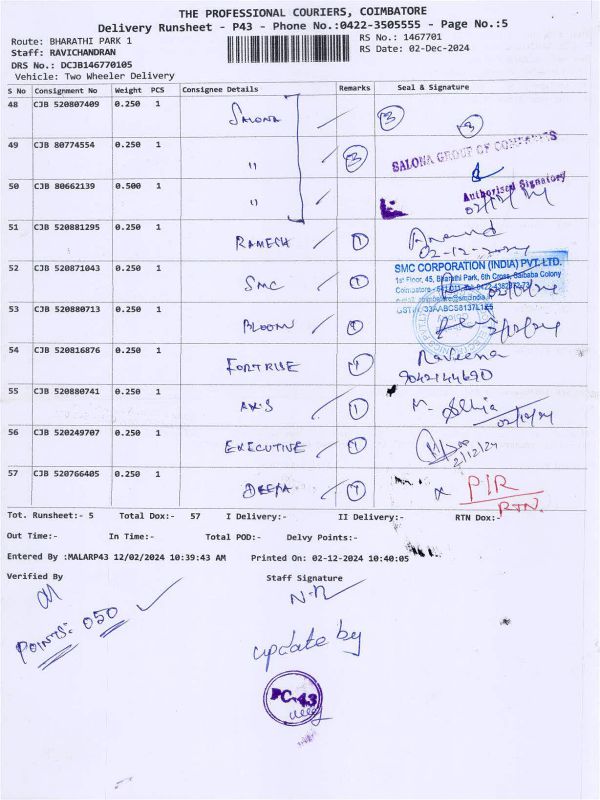 THE PROFESSIONAL COURIERS, COIMBATORE
Delivery Runsheet - P43 - Phone No.:0422-3505555 - Page No.:5
Route: BHARATHI PARK 1
RS No.: 1467701
Staff: RAVICHANDRAN
RS Date: 02-Dec-2024
DRS No.: DCJB146770105
Vehicle: Two Wheeler Delivery
S No Consignment No Weight PCS Consignee Details Remarks Seal & Signature
48 CJB 520807409 0.250 1 SALONA 3
49 CJB 80774554 0.250 1 " 3 SALONA GROUP OF COMPANIES
50 CJB 80662139 0.500 1 " Authorised Signatory
02/12/24
51 CJB 520881295 0.250 1 RAMESH 1 Anand
02-12-2024
52 CJB 520871043 0.250 1 SMC 1 SMC CORPORATION (INDIA) PVT. LTD.
1st Floor, 45, Bharathi Park, 6th Cross, Saibaba Colony
53 CJB 520880713 0.250 1 BLOOM 1 2/12/24
54 CJB 520816876 0.250 1 FORTRISE 1 Raveena
9042144690
55 CJB 520880741 0.250 1 AXIS 1 02/12/24
56 CJB 520249707 0.250 1 EXECUTIVE 1
2/12/24
57 CJB 520766405 0.250 1 DEEPA 1 P/R
RTN.
Tot. Runsheet:- 5 Total Dox:- 57 I Delivery:- II Delivery:- RTN Dox:-
Out Time:- In Time:- Total POD:- Delvy Points:-
Entered By :MALARP43 12/02/2024 10:39:43 AM Printed On: 02-12-2024 10:40:05
Verified By Staff Signature
N.R
POINTS: 050
update by
PC-43